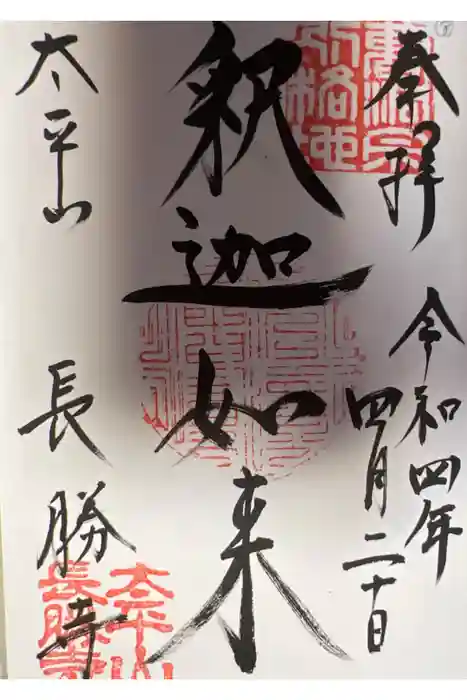 奉拝
令和四年
四月二十日
釈迦如来
太平山
長勝寺
太平山
長勝寺